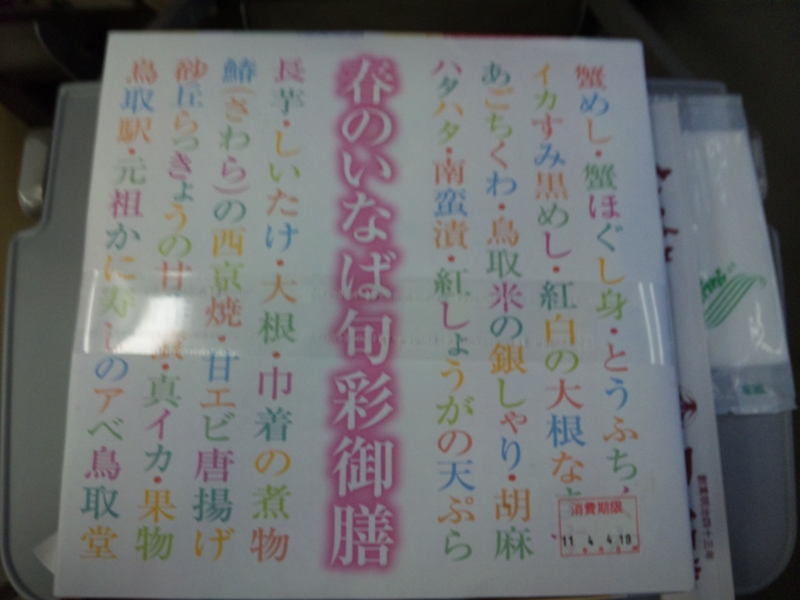 蟹めし・蟹ほぐし身・とうふち
イカすみ黒めし・紅白の大根な
あごちくわ・鳥取米の銀しゃり・胡麻
ハタハタ・南蛮漬・紅しょうがの天ぷら
春のいなば旬彩御膳
長芋・しいたけ・大根・巾着の煮物
鰆(さわら)の西京焼・甘エビ唐揚げ
砂丘らっきょうの甘・真イカ・果物
鳥取駅・元祖かに寿しのアベ鳥取堂
消費期限
11 4 4 19